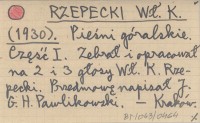 RZEPECKI Wł. K.
(1930). Pieśni góralskie.
Część I. Zebrał i opracował
na 2 i 3 głosy Wł. K. Rze-
pecki. Przedmowę napisał J.
G. H. Pawlikowski. — Kraków.